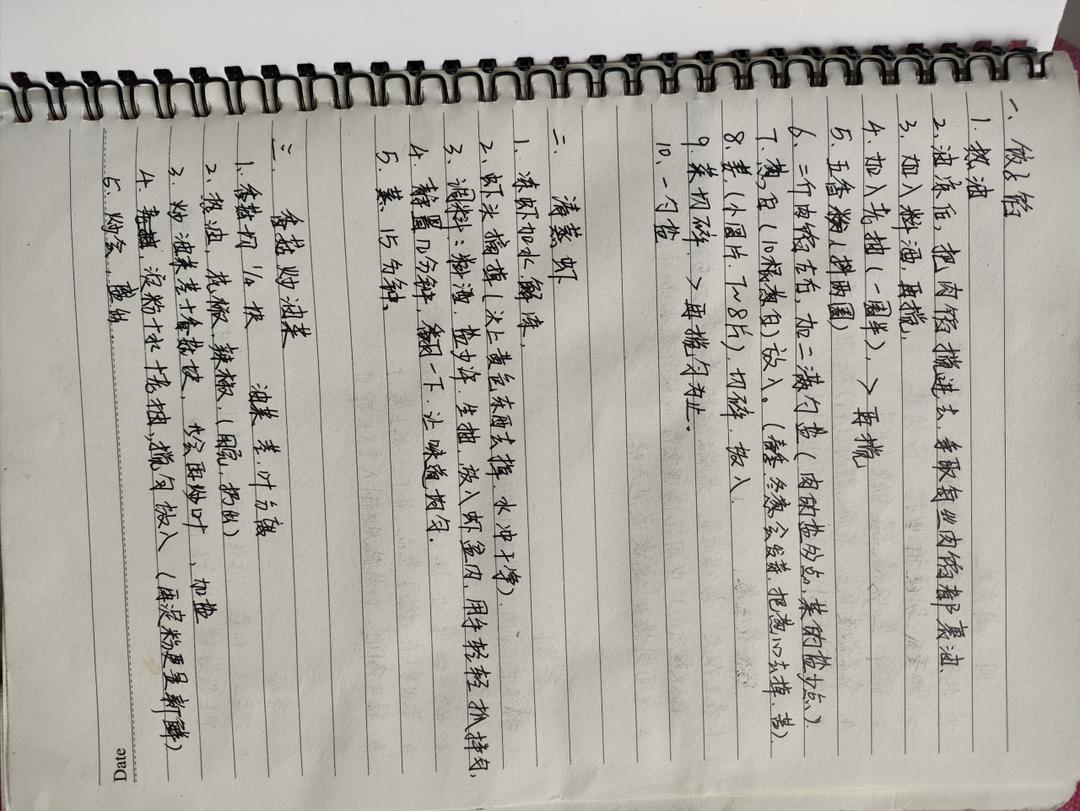 一、饺子馅
1. 热油
2. 油冻后,把肉馅搅进去,争取每丝肉馅都裹油.
3. 加入料酒,再搅,
4. 加入老抽(一圈半)、> 再搅
5. 五香粉(拌两圈)
6. 二斤肉馅左右,加二满勺盐(肉的盐多点,菜的盐少点).
7. 葱白(10根葱白)放入。(冬葱会发芽,把葱心去掉.苦).
8. 姜.(小圆片.7~8片).切碎.放入.
9. 菜切碎. > 再搅匀为止.
10. 一勺盐
二. 清蒸虾
1. 冻虾加水,解冻,
2. 虾头摘掉(头上黄色东西去掉.水冲干净).
3. 调料:料酒.盐少许.生抽.放入虾盆内,用手轻轻抓拌匀,
4. 静置几分钟,翻一下.让味道均匀.
5. 蒸.15分钟。
三 香菇炒油菜
1. 香菇切 1/4 块 油菜茎.叶分离
2. 热油,花椒、辣椒.(捞出)
3. 炒油菜茎+香菇块, 再炒叶,加盐
4. 淀粉+水+老抽,搅匀放入(再淀粉更显新鲜)
5. 炒会,盛出.
Date